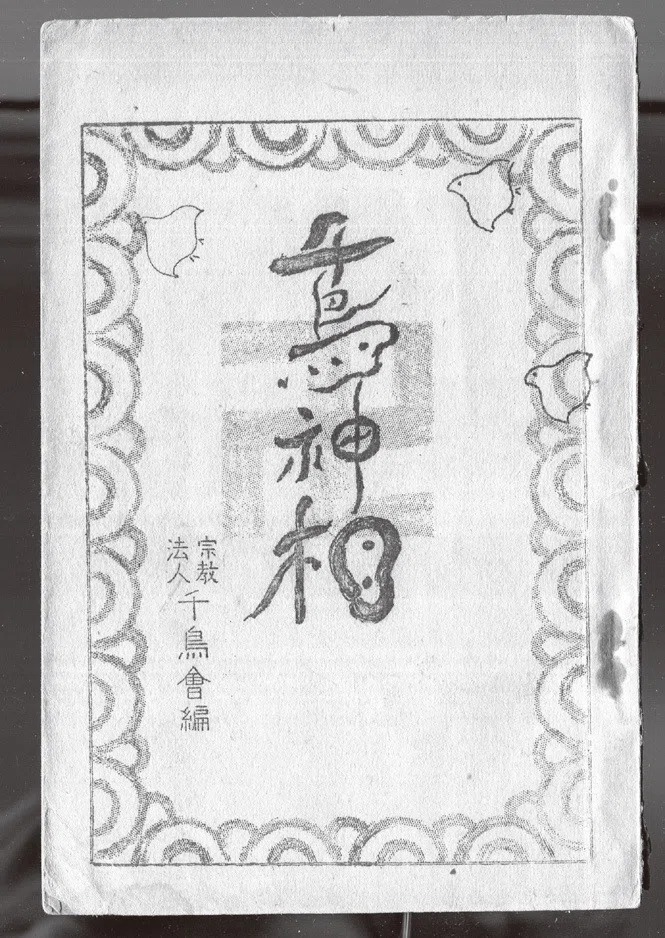 千鳥神相
宗教法人千鳥會編